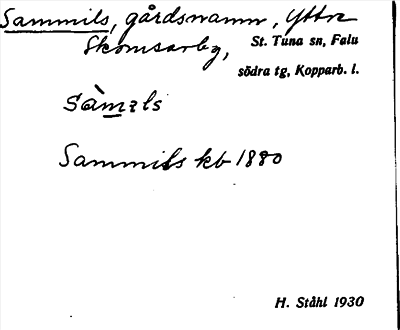 Sammils, gårdsnamn, Yttre
Skomsarby, St. Tuna sn, Falu
södra tg, Kopparb. l.
sàmɩls
Sammils kb 1880
H. Ståhl 1930